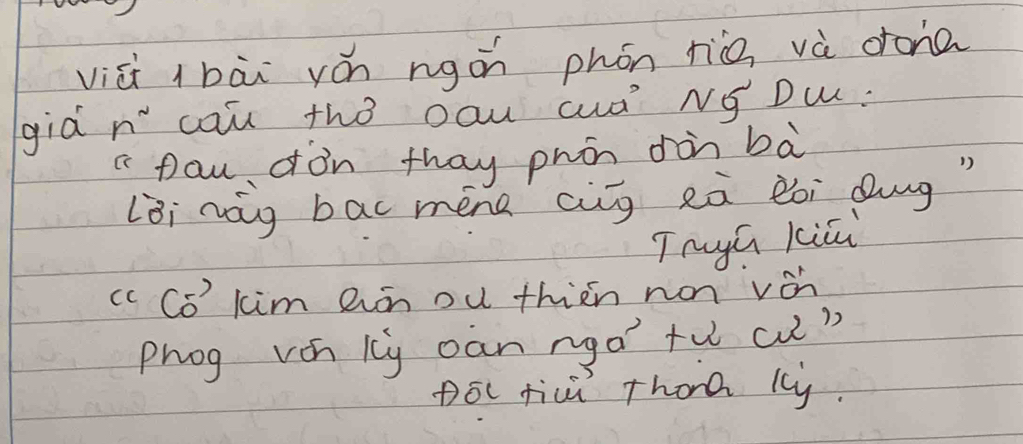 Viết 1 bài văn ngắn phân tích và đánh
giá n~ câu thơ sau của Ng~ Du:
"Đau đớn thay phận đàn bà
Lời rằng bạc mệnh cũg là lời chug"
Truyện Kiều
"Cổ kim hận sự thiên nan vấn
Phog vận kỳ oan ngã tự cư"
Độc tiểu Thanh ký.